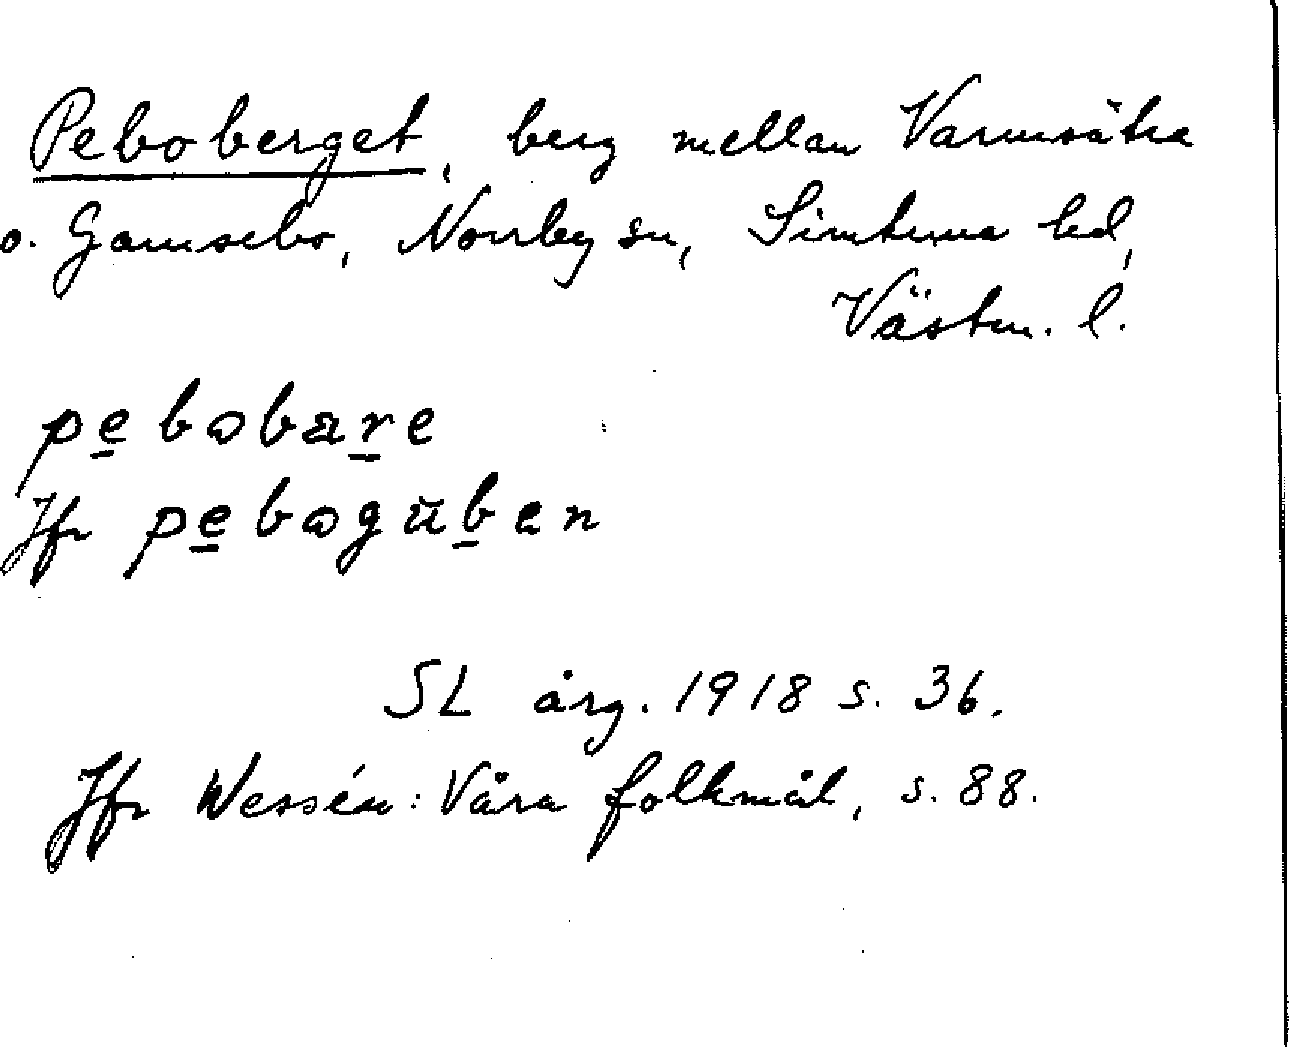 Peboberget, berg mellan Varmsätra
o. Gamsebo, Norrby sn, Simtuna hd,
Västm. l.
pe̲bɷbar̲e
Jfr pe̲bɷgŭb̲en
SL årg. 1918 s. 36.
Jfr Wessén: Våra folkmål, s. 88.